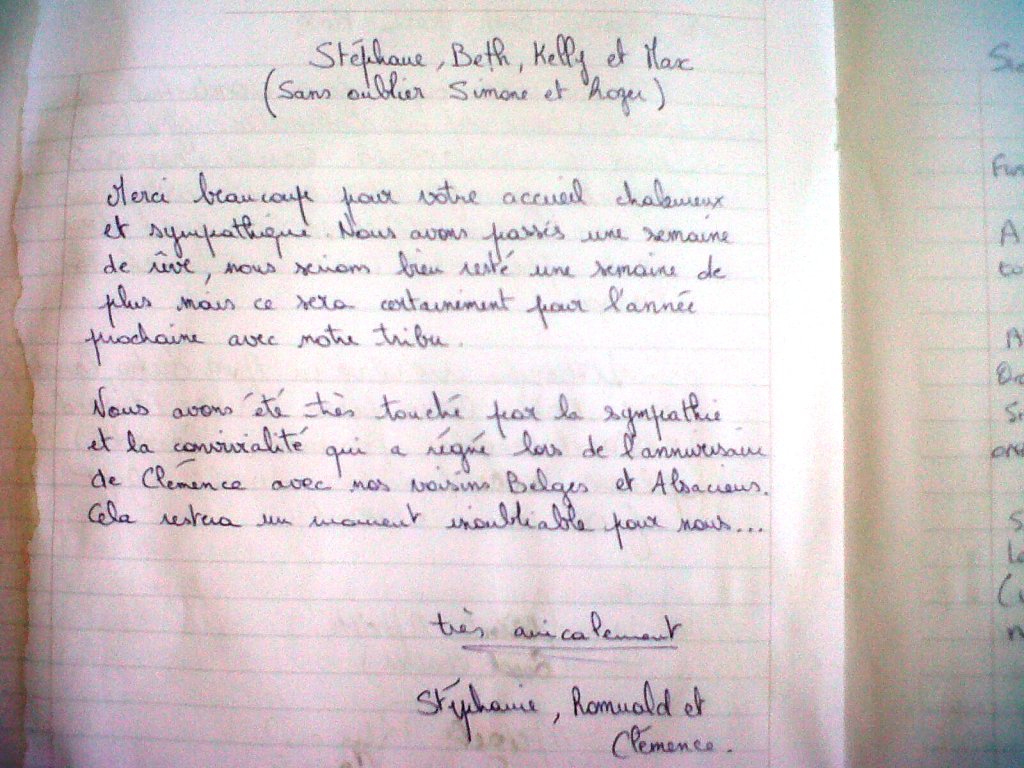 Stéphane, Beth, Kelly et Max
(Sans oublier Simone et Roger)
Merci beaucoup pour votre accueil chaleureux
et sympathique. Nous avons passés une semaine
de rêve, nous serions bien resté une semaine de
plus mais ce sera certainement pour l'année
prochaine avec notre tribu.
Nous avons été très touché par la sympathie
et la convivialité qui a régné lors de l'anniversaire
de Clémence avec nos voisins Belges et Alsaciens.
Cela restera un moment inoubliable pour nous...
très amicalement
Stéphanie, Romuald et
Clémence.